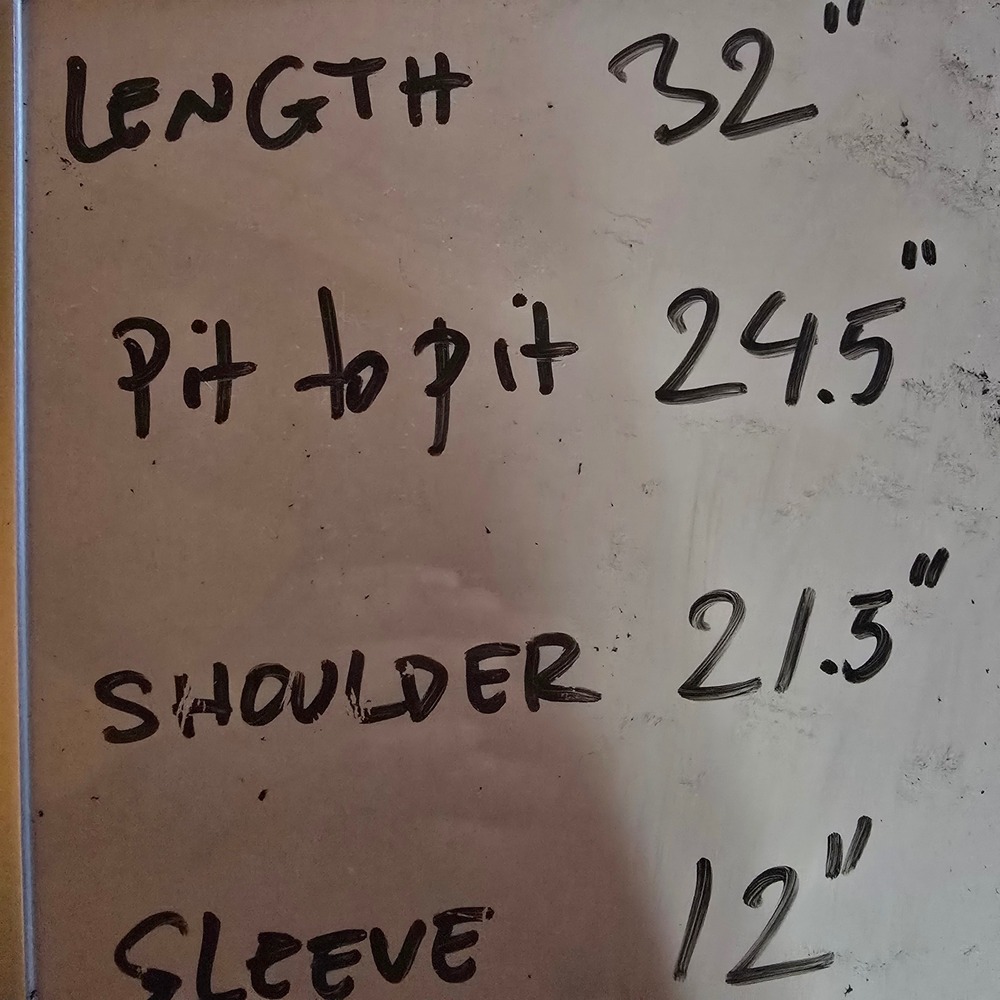 LENGTH 32"
Pit to pit 24.5"
SHOULDER 21.5"
SLEEVE 12"